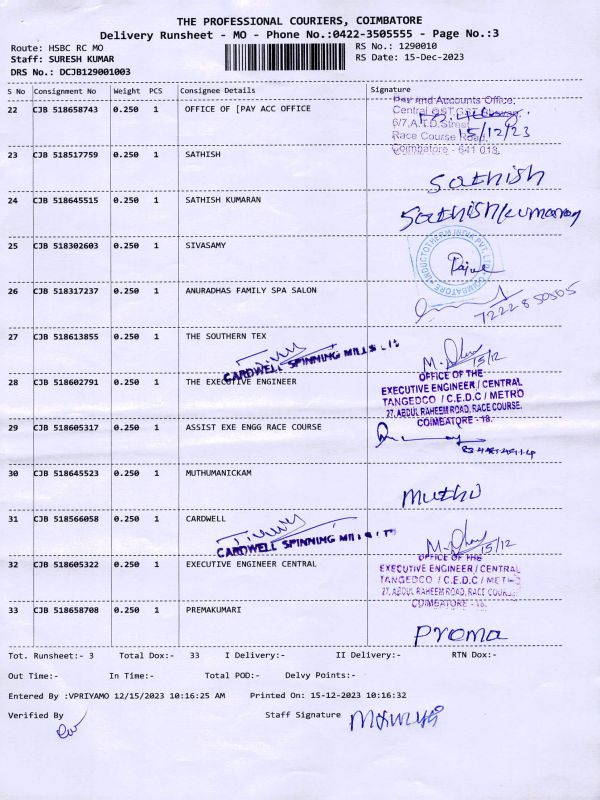 THE PROFESSIONAL COURIERS, COIMBATORE
Delivery Runsheet - MO - Phone No.:0422-3505555 - Page No.:3
Route: HSBC RC MO
RS No.: 1290010
Staff: SURESH KUMAR
RS Date: 15-Dec-2023
DRS No.: DCJB129001003
S No Consignment No Weight PCS Consignee Details Signature
22 CJB 518658743 0.250 1 OFFICE OF [PAY ACC OFFICE
Pay and Accounts Office,
Race Course Road,
15/12/23
Coimbatore - 641 018.
23 CJB 518517759 0.250 1 SATHISH
Sathish
24 CJB 518645515 0.250 1 SATHISH KUMARAN
Sathishkumaran
25 CJB 518302603 0.250 1 SIVASAMY
INDUCTOTHERM INDIA PVT. LTD. COIMBATORE
26 CJB 518317237 0.250 1 ANURADHAS FAMILY SPA SALON
27 CJB 518613855 0.250 1 THE SOUTHERN TEX
CARDWELL SPINNING MILLS
15/12
28 CJB 518602791 0.250 1 THE EXECUTIVE ENGINEER
OFFICE OF THE
EXECUTIVE ENGINEER / CENTRAL
TANGEDCO / C.E.D.C / METRO
27, ABDUL RAHEEM ROAD, RACE COURSE,
COIMBATORE - 18.
29 CJB 518605317 0.250 1 ASSIST EXE ENGG RACE COURSE
30 CJB 518645523 0.250 1 MUTHUMANICKAM
Muthu
31 CJB 518566058 0.250 1 CARDWELL
CARDWELL SPINNING MILLS
15/12
32 CJB 518605322 0.250 1 EXECUTIVE ENGINEER CENTRAL
OFFICE OF THE
EXECUTIVE ENGINEER / CENTRAL
TANGEDCO / C.E.D.C / METRO
27, ABDUL RAHEEM ROAD, RACE COURSE,
COIMBATORE - 18.
33 CJB 518658708 0.250 1 PREMAKUMARI
Prema
Tot. Runsheet:- 3 Total Dox:- 33 I Delivery:- II Delivery:- RTN Dox:-
Out Time:- In Time:- Total POD:- Delvy Points:-
Entered By :VPRIYAMO 12/15/2023 10:16:25 AM Printed On: 15-12-2023 10:16:32
Verified By Staff Signature